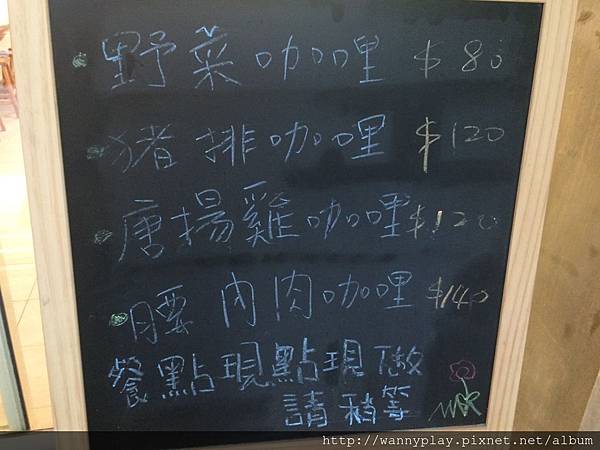 野菜咖哩 $80
豬排咖哩 $120
唐揚雞咖哩 $120
腰內肉咖哩 $140
餐點現點現做
請稍等
http://wannyplay.pixnet.net/album